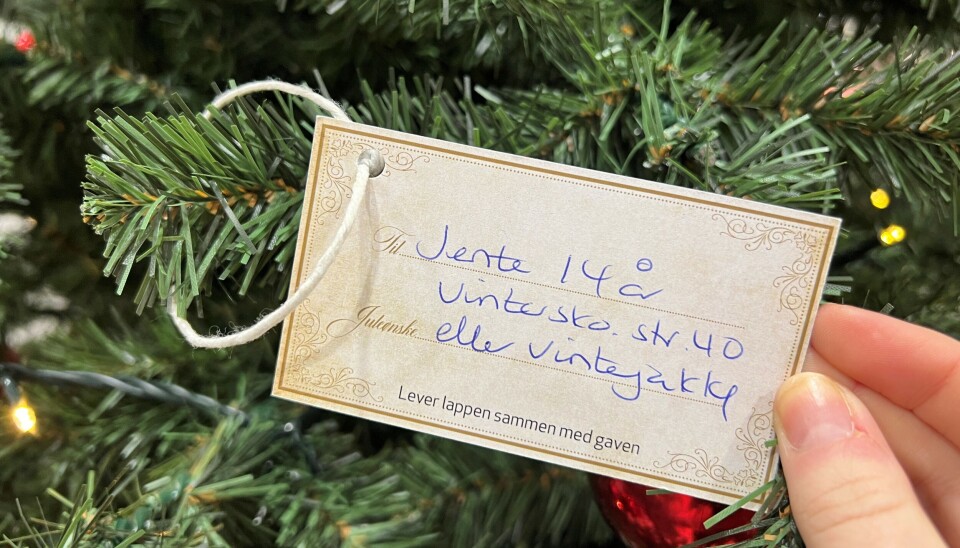 Til Jente 14 år
Vintersko. str. 40
Juleønske eller vintejakke
Lever lappen sammen med gaven